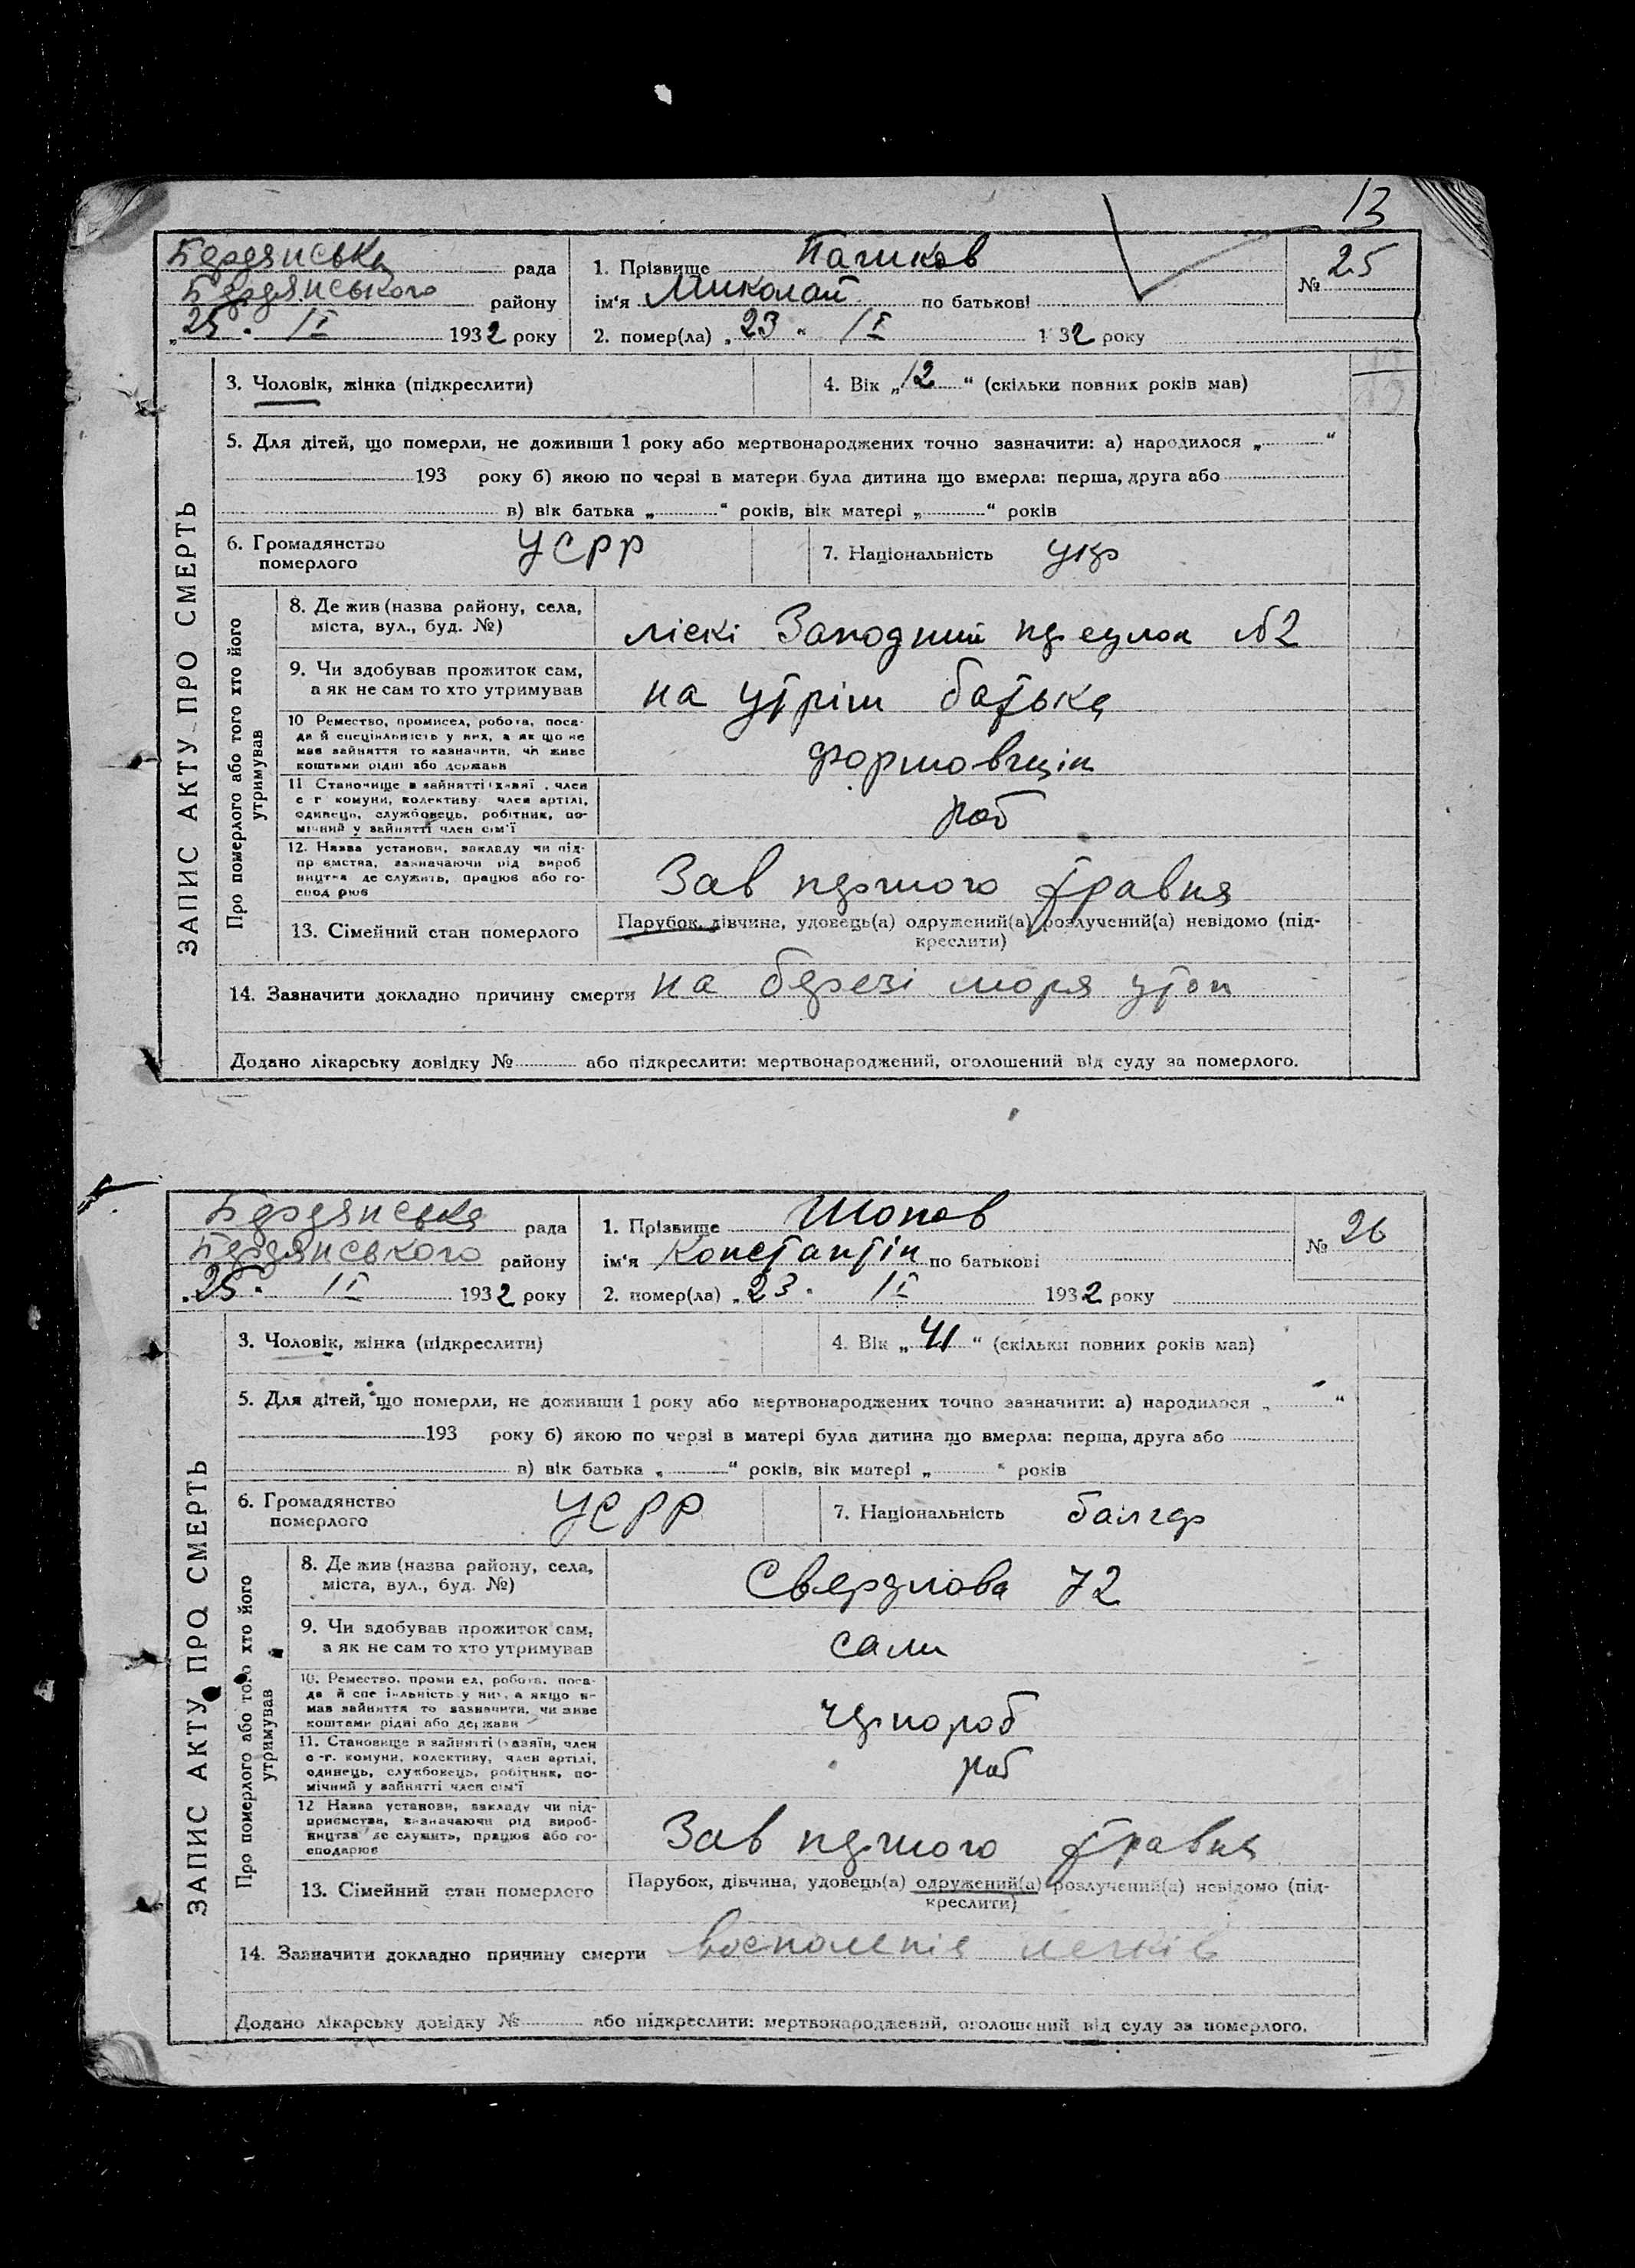 13
Бердянська рада
Бердянського району
„25" ІІ 1932 року
1. Прізвище Пашков
ім'я Миколай по батькові
2. помер(ла) „23" ІІ 1932 року
№ 25
ЗАПИС АКТУ ПРО СМЕРТЬ
3. Чоловік, жінка (підкреслити)
4. Вік „12" (скільки повних років мав)
5. Для дітей, що померли, не доживши 1 року або мертвонароджених точно зазначити: а) народилося „ "
193 року б) якою по черзі в матери була дитина що вмерла: перша, друга або
в) вік батька „ " років, вік матері „ " років
6. Громадянство
померлого
УСРР
7. Національність укр
Про померлого або того хто його
утримував
8. Де жив (назва району, села,
міста, вул., буд. №)
ліскі Заподний переулок №2
9. Чи здобував прожиток сам,
а як не сам то хто утримував
на утрім батька
10 Ремество, промисел, робота, поса-
да й спеціяльність у них, а як що не
мав зайняття то зазначити, чи живе
коштами рідні або держави
формовщік
11 Становище в зайнятті (хазяї , член
с г комуни, колективу член артілі,
одинець, службовець, робітник, по-
мічний у зайнятті член сім'ї
роб
12. Назва установи, закладу чи під-
пр ємства, зазначаючи рід вироб
ництва де служить, працює або го-
спод рює
Зав першого травня
13. Сімейний стан померлого
Парубок, дівчина, удовець(а) одружений(а) розлучений(а) невідомо (під-
креслити)
14. Зазначити докладно причину смерти на березі моря утоп
Додано лікарську довідку № або підкреслити: мертвонароджений, оголошений від суду за померлого.
Бердянська рада
Бердянського району
„25" ІІ 1932 року
1. Прізвище Шопов
ім'я Константін по батькові
2. помер(ла) „23" ІІ 1932 року
№ 26
ЗАПИС АКТУ ПРО СМЕРТЬ
3. Чоловік, жінка (підкреслити)
4. Вік „41" (скільки повних років мав)
5. Для дітей, що померли, не доживши 1 року або мертвонароджених точно зазначити: а) народилося „ "
193 року б) якою по черзі в матері була дитина що вмерла: перша, друга або
в) вік батька „ " років, вік матері „ " років
6. Громадянство
померлого
УСРР
7. Національність балгар
Про померлого або того хто його
утримував
8. Де жив (назва району, села,
міста, вул., буд. №)
Свердлова 72
9. Чи здобував прожиток сам,
а як не сам то хто утримував
сам
10. Ремество, проми ел, робота, поса-
да й спе іяльність у них, а якщо н-
мав зайняття то зазначити, чи живе
коштами рідні або держави
чернороб
11. Становище в зайнятті (хазяїн, член
с-г. комуни, колективу, член артілі,
одинець, службовець, робітник, по-
мічний у зайнятті член сім'ї
роб
12 Назва установи, закладу чи під-
приємства, зазначаючи рід вироб-
ництва де служить, працює або го-
сподарює
Зав першого травня
13. Сімейний стан померлого
Парубок, дівчина, удовець(а) одружений(а) розлучений(а) невідомо (під-
креслити)
14. Зазначити докладно причину смерти воспаленіе легків
Додано лікарську довідку № або підкреслити: мертвонароджений, оголошений від суду за померлого.